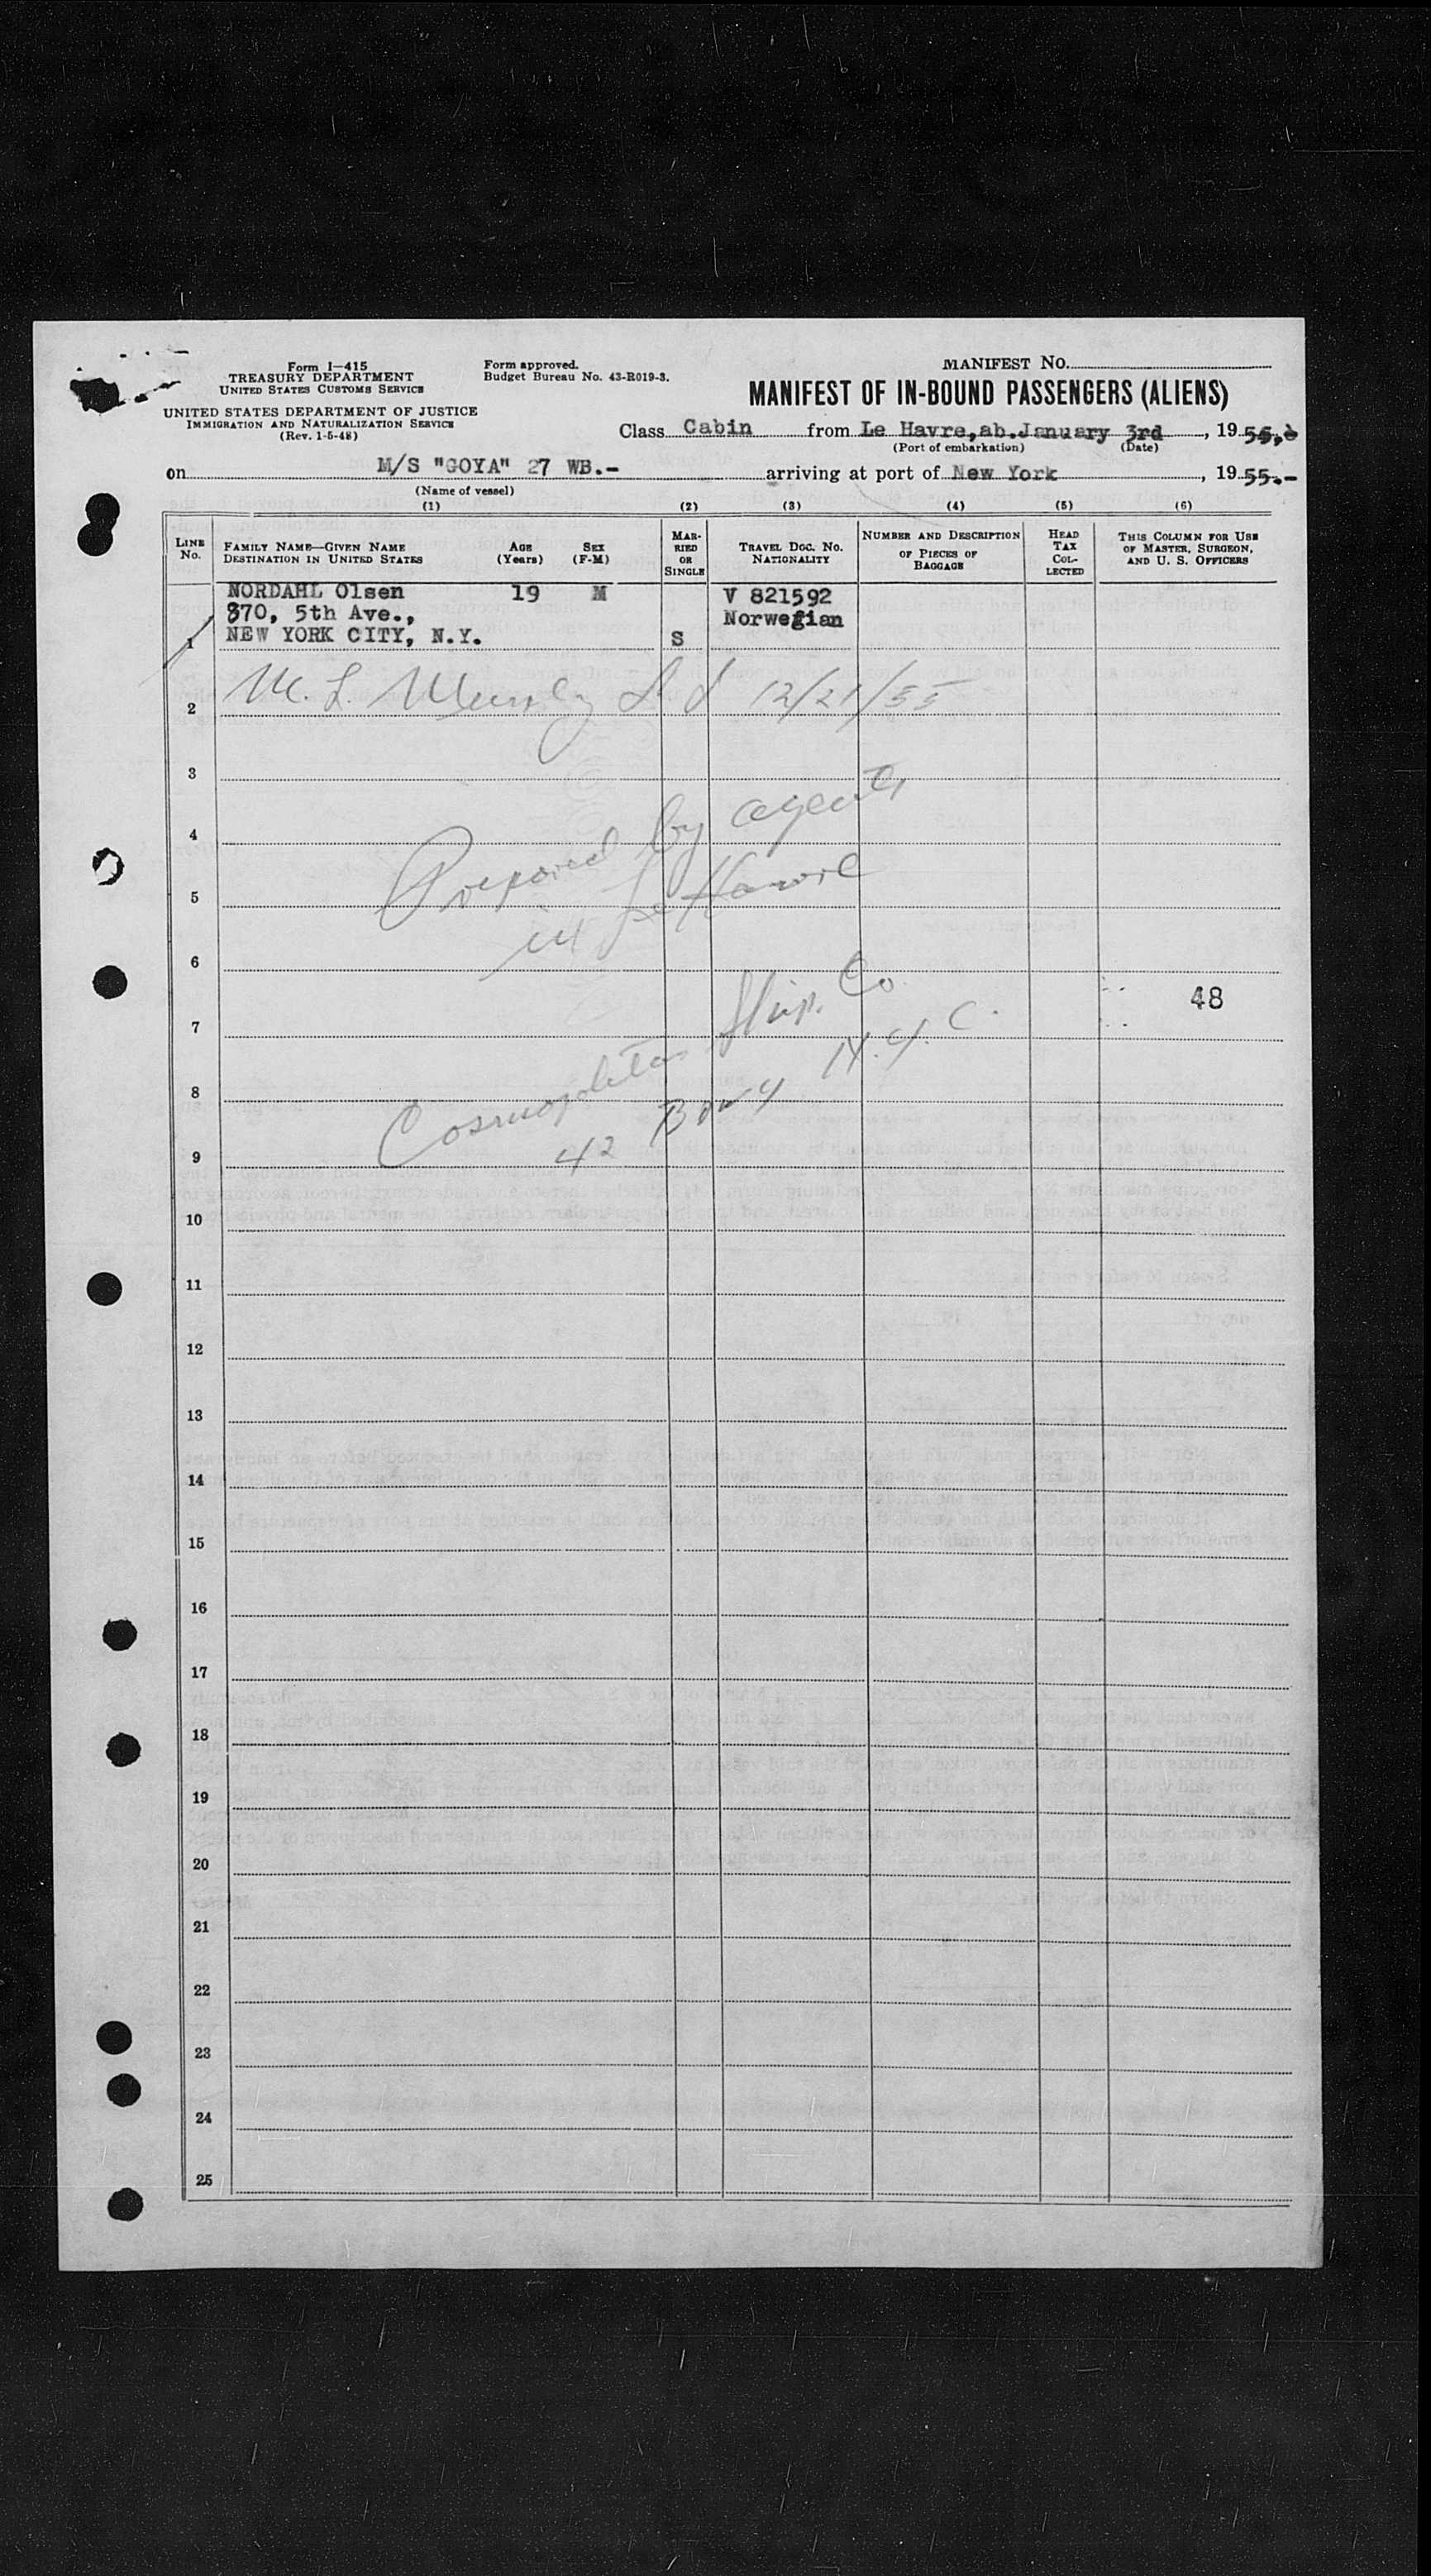 Form I-415
TREASURY DEPARTMENT
UNITED STATES CUSTOMS SERVICE
UNITED STATES DEPARTMENT OF JUSTICE
IMMIGRATION AND NATURALIZATION SERVICE
(Rev. 1-5-48)
Form approved.
Budget Bureau No. 43-R019-3.
MANIFEST NO.
MANIFEST OF IN-BOUND PASSENGERS (ALIENS)
Class Cabin from Le Havre, ab. January 3rd, 19
(Port of embarkation) (Date)
on M/S "GOYA" 27 WB.- arriving at port of New York, 1955.-
(Name of vessel)
(1) (2) (3) (4) (5) (6)
LINE No. FAMILY NAME—GIVEN NAME DESTINATION IN UNITED STATES AGE (Years) SEX (F-M) MARRIED OR SINGLE TRAVEL DOC. NO. NATIONALITY NUMBER AND DESCRIPTION OF PIECES OF BAGGAGE HEAD TAX COLLECTED THIS COLUMN FOR USE OF MASTER, SURGEON, AND U. S. OFFICERS
NORDAHL Olsen 19 M V 821592
370, 5th Ave., Norwegian
1 NEW YORK CITY, N.Y. S
2 M. L. 12/21/55
3
4
Prepared by agents
5
in Le Havre
6
48
7
Cosmopolitan Ship. Co
8
42 Bdwy N.Y.C.
9
10
11
12
13
14
15
16
17
18
19
20
21
22
23
24
25